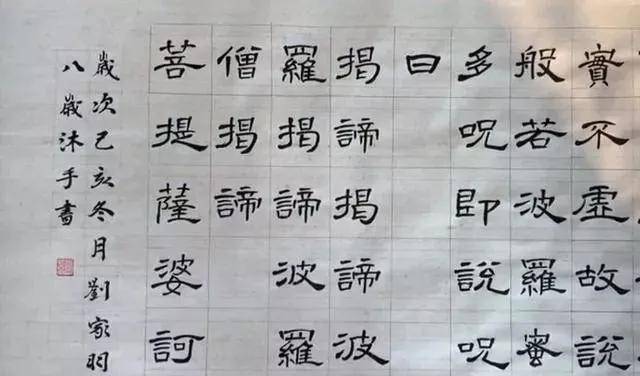 實不虛故說
般若波羅蜜
多呪即說呪
曰
揭諦揭諦波
羅揭諦波羅
僧揭諦
菩提薩婆訶
歲次己亥冬月劉家羽
八歲沐手書